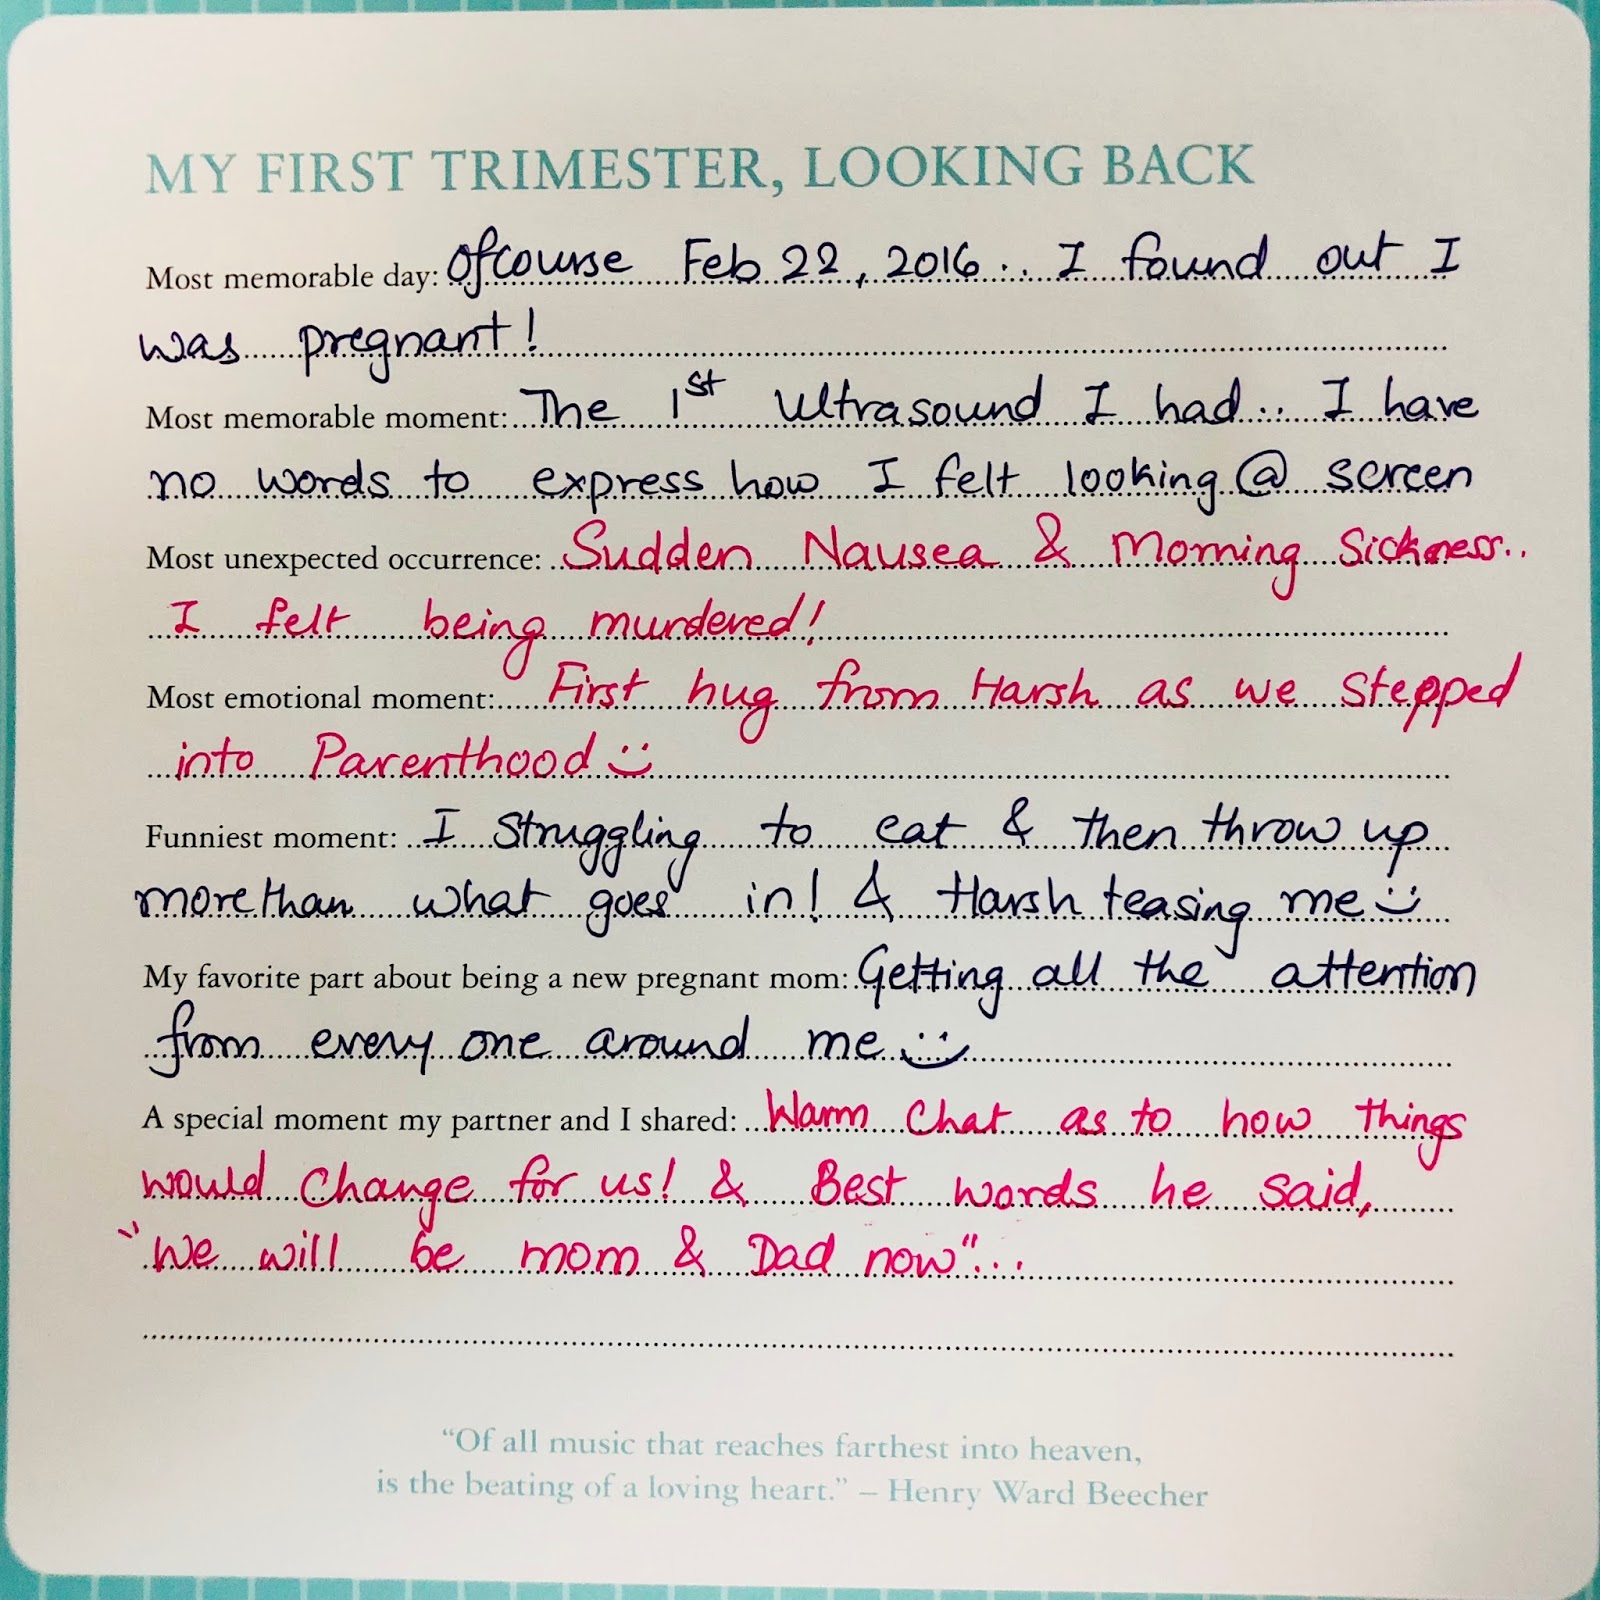 MY FIRST TRIMESTER, LOOKING BACK
Most memorable day: Ofcourse Feb 22, 2016... I found out I
was pregnant!
Most memorable moment: The 1st Ultrasound I had.. I have
no words to express how I felt looking @ screen
Most unexpected occurrence: Sudden Nausea & Morning Sickness..
I felt being murdered!
Most emotional moment: First hug from Harsh as we stepped
into Parenthood :)
Funniest moment: I struggling to eat & then throw up
more than what goes in! & Harsh teasing me :)
My favorite part about being a new pregnant mom: Getting all the attention
from every one around me :)
A special moment my partner and I shared: Warm Chat as to how things
would Change for us! & Best words he said,
"We will be mom & Dad now"...
“Of all music that reaches farthest into heaven,
is the beating of a loving heart.” – Henry Ward Beecher